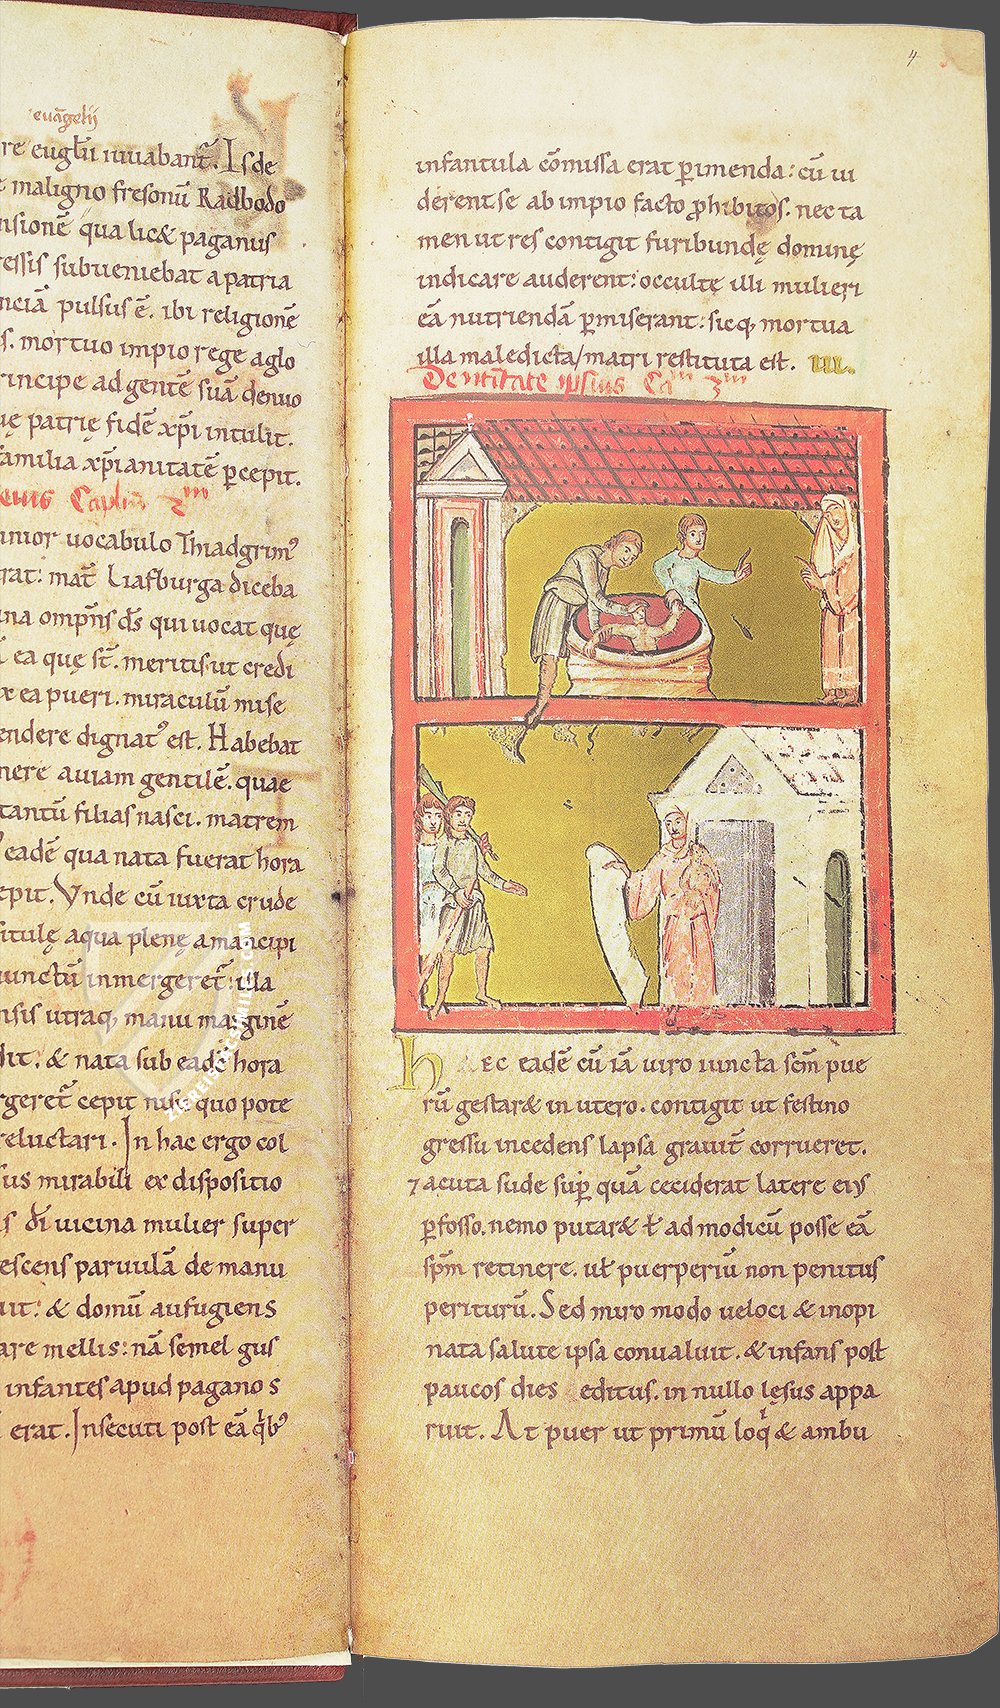 euāgelij
re eugłii iuuabant̄. Is de
maligno fresonū Radbodo
nsionē qua lic& paganus
ressis subueniebat a patria
nciā pulsus ē. ibi religionē
s. mortuo impio rege aglo
rincipe ad gentē suā denuo
uę patrię fidē xp̄i intulit.
familia xp̄ianitatē p̄cepit.
euis Capłm 2m
unior uocabulo Thiadgrim'
rat: mat̄ Liafburga diceba
ina omp̄ns d̄s qui uocat quę
ea quę st̄. meritis ut credi
x ea pueri. miraculū mise
endere dignat' est. Habebat
nere auiam gentilē. quae
tantū filias nasci. matrem
eadē qua nata fuerat hora
cepit. Vnde cū iuxta crude
situlę aqua plenę a mancipi
iunctū inmergeret̄: illa
nsis utraq, manu marginē
dit: & nata sub eadē hora
rgeret̄ cepit nisu quo pote
reluctari. In hac ergo col
sus mirabili ex dispositio
s d̄i uicina mulier super
escens paruulā de manu
uit: & domū aufugiens
are mellis: nā semel gus
infantes apud paganos
erat. Insecuti post eā q'b'
4
infantula cōmissa erat p̄imenda: cū ui
derent se ab impio facto p̄hibitos. nec ta
men ut res contigit furibundę dominę
indicare auderent: occultę illi mulieri
eā nutriendā p̄miserant: sicq, mortua
illa maledicta/matri restituta est. III.
De utilitate ipsius Cam 3m
HAEC eadē cū iā uiro iuncta sc̄m pue
rū gestar& in utero. contigit ut festino
gressu incedens lapsa grauit̄ corrueret.
⁊ acuta sude sup̄ quā ceciderat latere eius
p̄fosso. nemo putar& ł ad modicū posse eā
sp̄m retinere. uł puerperiū non penitus
periturū. Sed miro modo ueloci & inopi
nata salute ipsa conualuit. & infans post
paucos dies editus. in nullo lęsus appa
ruit. At puer ut primū loq' & ambu